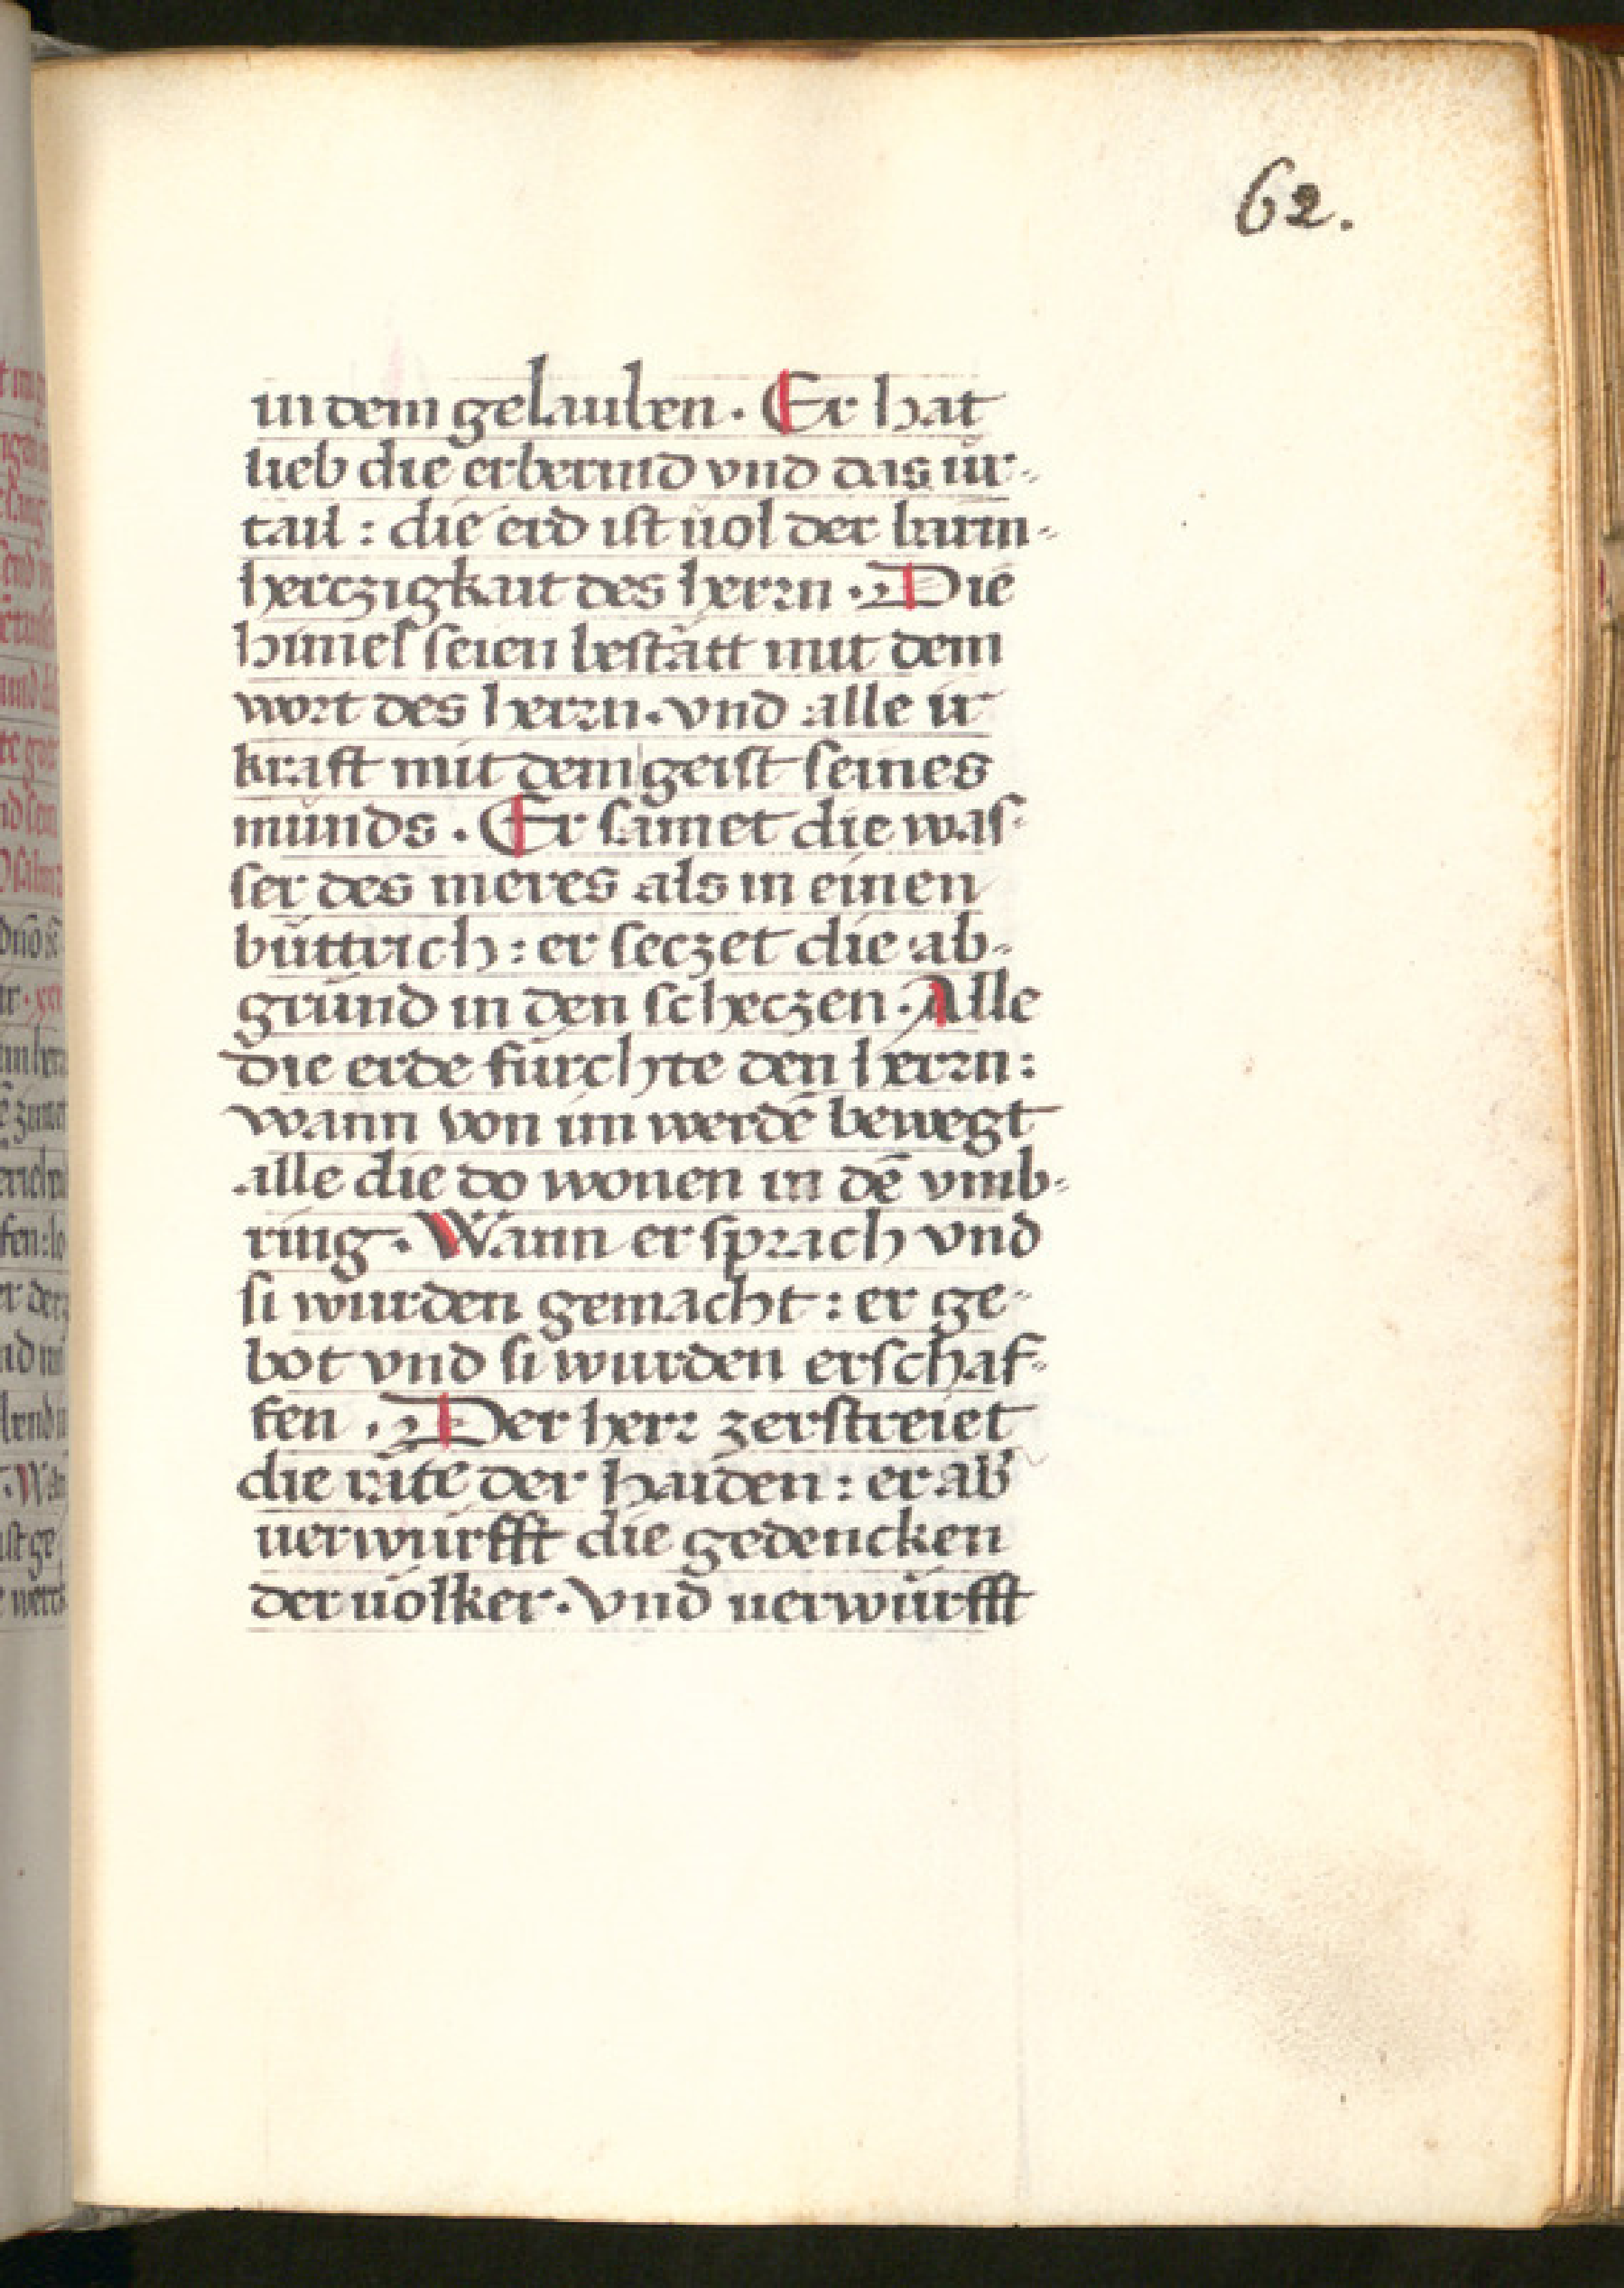 62.
in dem gelauben. Er hat
lieb die erbermd vnd das ur-
tail : die erd ist uol der barm-
herczigkait des herrn. Die
himel seien bestätt mit dem
wort des herrn. vnd alle ir
kraft mit dem geist seines
munds. Er samet die was-
ser des meres als in einen
büttrich : er seczet die ab-
grund in den scheczen. Alle
die erde fürchte den herrn :
wann von im werdē bewegt
alle die do wonen in dē vmb-
ring. Wann er sprach vnd
si wurden gemacht : er ge-
bot vnd si wurden erschaf-
fen. Der herr zerstreiet
die räte der haiden : er ab
uerwürfft die gedencken
der uölker. vnd uerwürfft